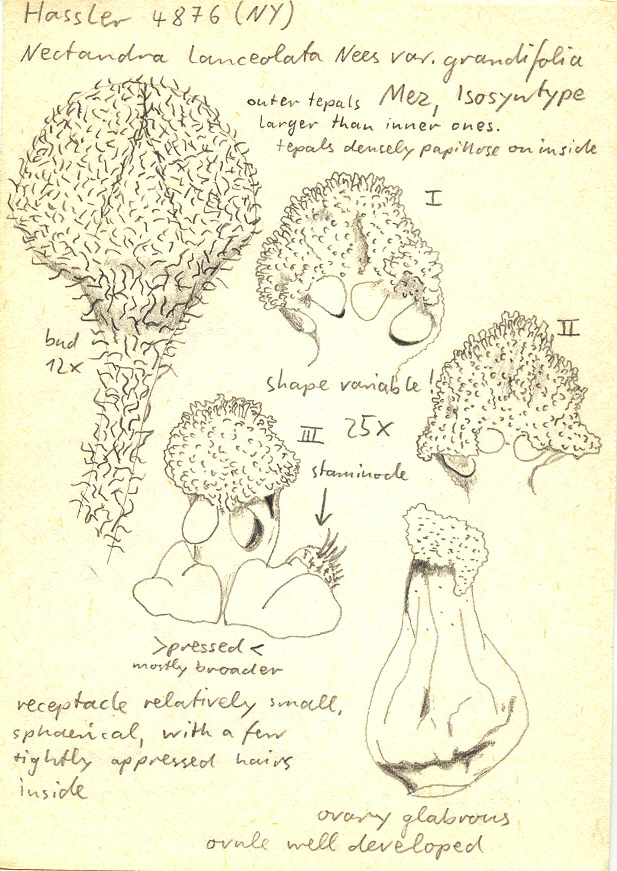 Hassler 4876 (NY)
Nectandra lanceolata Nees var. grandifolia
Mez, Isosyntype
outer tepals
larger than inner ones.
tepals densely papillose on inside
I
bud
12x
II
shape variable!
III 25x
staminode
>pressed<
mostly broader
receptacle relatively small,
sphaerical, with a few
tightly appressed hairs
inside
ovary glabrous
ovule well developed